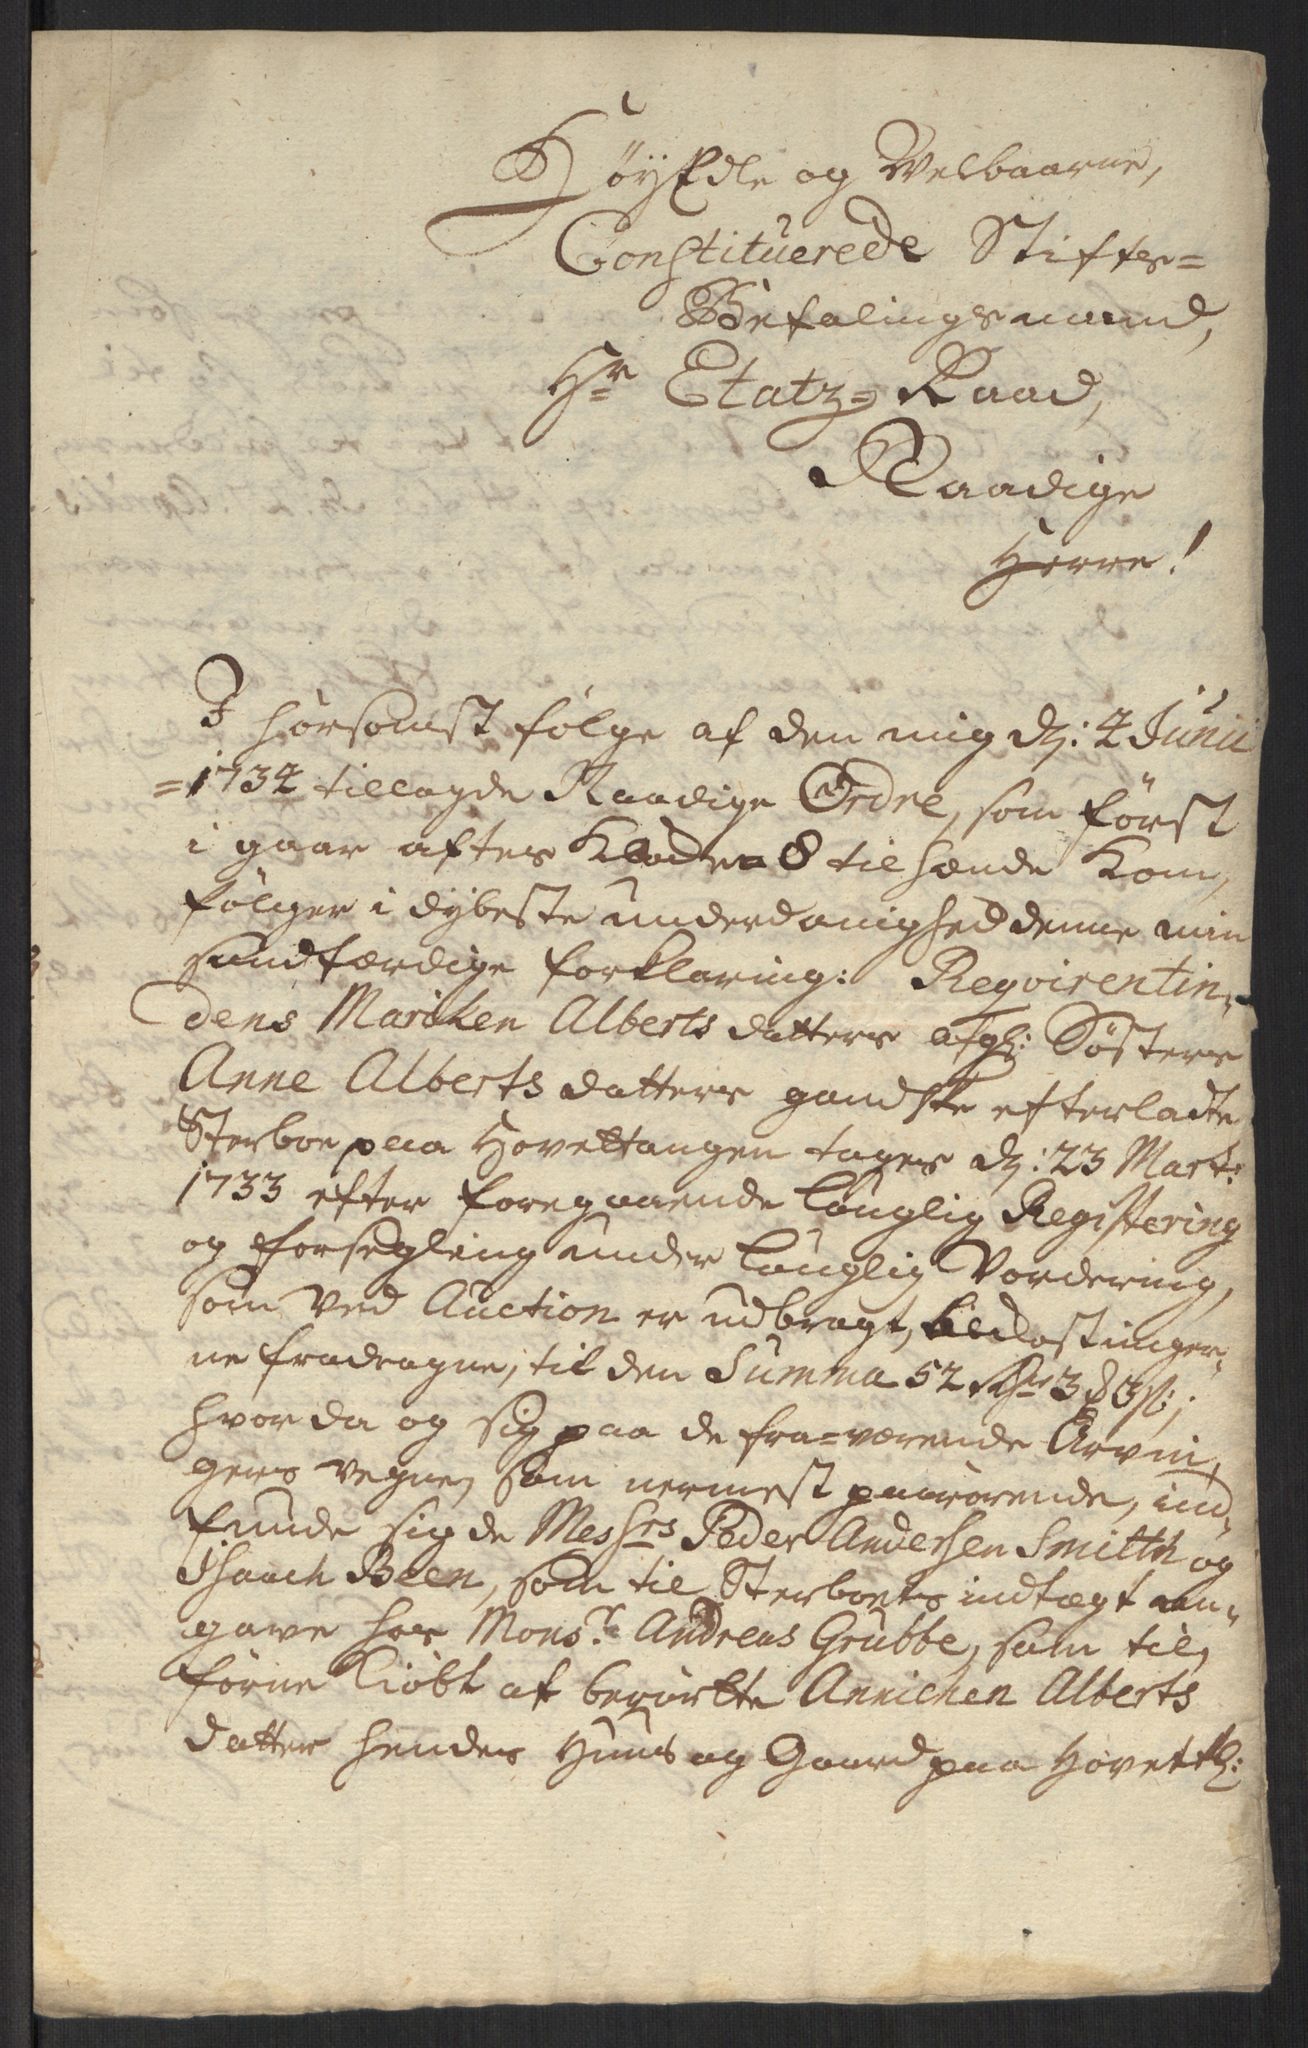 HöyÆdle og Welbaarne,
Constituerede Stifts=
Befalingsmand,
Hr Etatz=Raad,
Naadige
Herre!
I hörsomst fölge af den mig d: 4 Junii
=1734 tillagde Naadige Ordre, som först
i gaar aftes Klocken 8 til hænde kom,
fölger i dybeste underdanighed denne min
sandfærdige forklaring: Reqvirentin,,
dens Maricken Alberts datters afgl: Söster
Anne Alberts datters gandske efterladte
Sterboe paa Hovettangen tages d: 23 Marti
1733 efter foregaaende lauglig Registering
og forsegling under lauglig Vordering,
som ved Auction er udbragt, bekostninger,,
ne fradragne, til den Summa 52 Rdr 3 ℔ 3 s;
hvor da og sig paa de fra=værende Arvin,
gers vegne, som nermest paarörende, ind,,
funde sig de Messrs Peder Andersen Smitth og
Isaach Been, som til Sterboets indtægt an,,
gave hos Monsr Andreas Grubbe, som til,
förne kiöbt af berörtte Annichen Alberts
datter hendes Huus og Gaard paa Hovett: